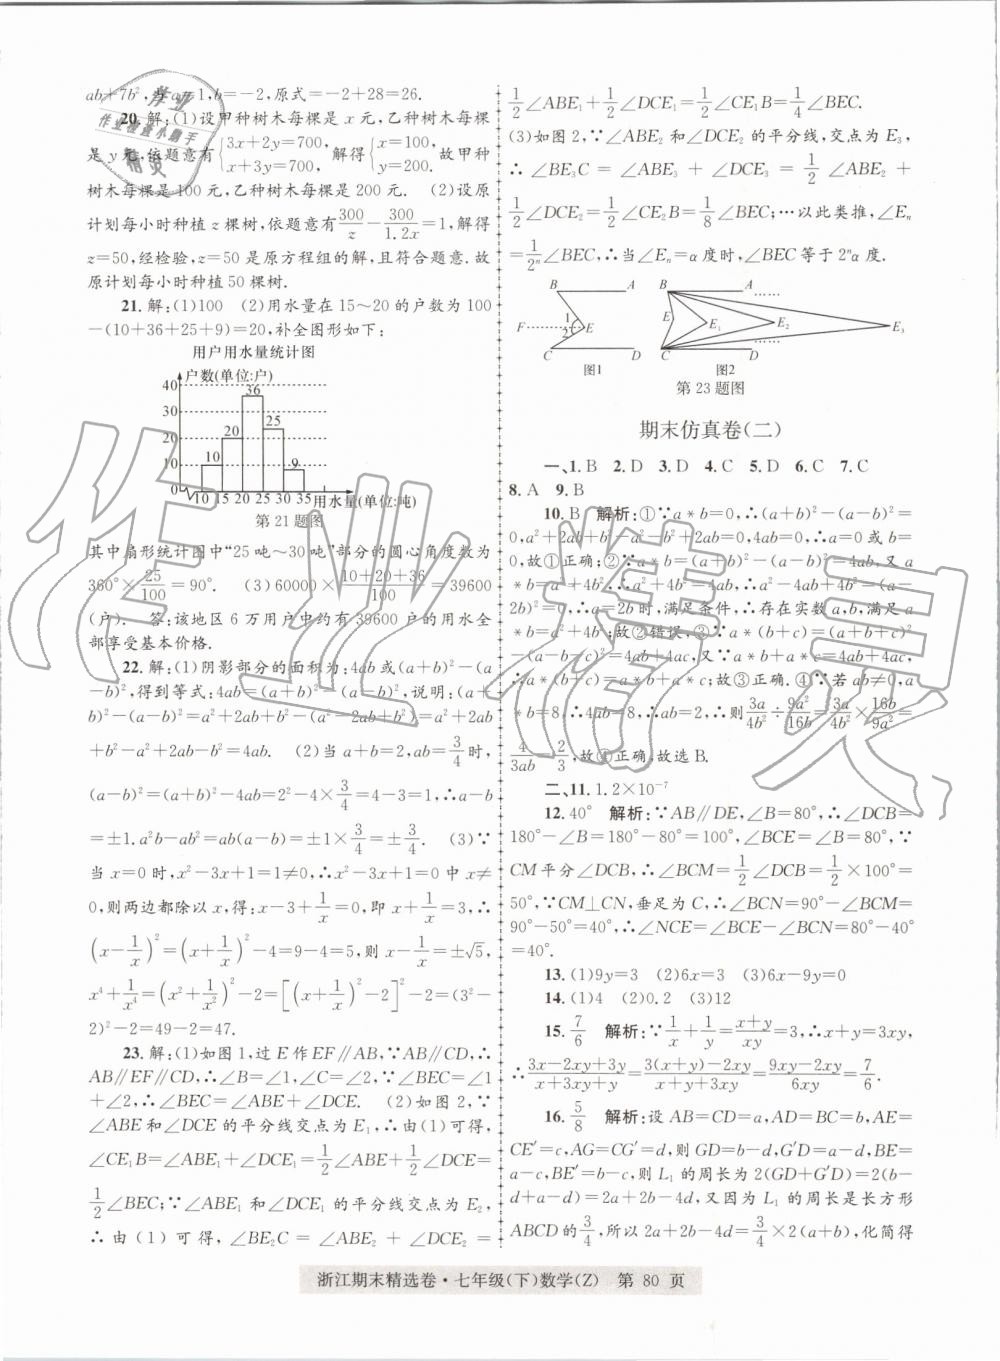 ab+7b²,当a=1,b=-2,原式=-2+28=26.
20.解:(1)设甲种树木每棵是x元,乙种树木每棵
是y元,依题意有{3x+2y=700, x+3y=700, 解得{x=100, y=200. 故甲种
树木每棵是100元,乙种树木每棵是200元. (2)设原
计划每小时种植z棵树,依题意有300/z-300/1.2x=1,解得
z=50,经检验,z=50是原方程组的解,且符合题意.故
原计划每小时种植50棵树.
21.解:(1)100 (2)用水量在15~20的户数为100
-(10+36+25+9)=20,补全图形如下:
用户用水量统计图
户数(单位:户)
40
30
20
10
0
10 20 36 25 9
10 15 20 25 30 35 用水量(单位:吨)
第21题图
其中扇形统计图中“25吨~30吨”部分的圆心角度数为
360°×25/100=90°. (3)60000×(10+20+36)/100=39600
(户). 答:该地区6万用户中约有39600户的用水全
部享受基本价格.
22.解:(1)阴影部分的面积为:4ab或(a+b)²-(a
-b)²,得到等式:4ab=(a+b)²-(a-b)²,说明:(a+
b)²-(a-b)²=a²+2ab+b²-(a²-2ab+b²)=a²+2ab
+b²-a²+2ab-b²=4ab. (2)当a+b=2,ab=3/4时,
(a-b)²=(a+b)²-4ab=2²-4×3/4=4-3=1,∴a-b
=±1.a²b-ab²=ab(a-b)=±1×3/4=±3/4. (3)∵
当x=0时,x²-3x+1=1≠0,∴x²-3x+1=0中x≠
0,则两边都除以x,得:x-3+1/x=0,即x+1/x=3,∴
(x-1/x)²=(x+1/x)²-4=9-4=5,则x-1/x=±√5,
x⁴+1/x⁴=(x²+1/x²)²-2=[(x+1/x)²-2]²-2=(3²-
2)²-2=49-2=47.
23.解:(1)如图1,过E作EF∥AB,∵AB∥CD,∴
AB∥EF∥CD,∴∠B=∠1,∠C=∠2,∵∠BEC=∠1
+∠2,∴∠BEC=∠ABE+∠DCE. (2)如图2,∵
∠ABE和∠DCE的平分线交点为E₁,∴由(1)可得,
∠CE₁B=∠ABE₁+∠DCE₁=1/2∠ABE+1/2∠DCE=
1/2∠BEC;∵∠ABE₁和∠DCE₁的平分线交点为E₂,
∴由(1)可得,∠BE₂C=∠ABE₂+∠DCE₂=
1/2∠ABE₁+1/2∠DCE₁=1/2∠CE₁B=1/4∠BEC.
(3)如图2,∵∠ABE₂和∠DCE₂的平分线,交点为E₃,
∴∠BE₃C=∠ABE₃+∠DCE₃=1/2∠ABE₂+
1/2∠DCE₂=1/2∠CE₂B=1/8∠BEC;…以此类推,∠Eₙ
=1/2ⁿ∠BEC,∴当∠Eₙ=α度时,∠BEC等于2ⁿα度.
B A
F 1 2 E
C D
图1
B A ……
E E₁ E₂ E₃
……
C D
图2
第23题图
期末仿真卷(二)
一、1.B 2.D 3.D 4.C 5.D 6.C 7.C
8.A 9.B
10.B 解析:①∵a*b=0,∴(a+b)²-(a-b)²=
0,a²+2ab+b²-a²-b²+2ab=0,4ab=0,∴a=0或b=
0,故①正确;②∵a*b=(a+b)²-(a-b)²=4ab,又a
*b=a²+4b²,∴a²+4b²=4ab,∴a²-4ab+4b²=(a-
2b)²=0,∴a=2b时,满足条件,∴存在实数a,b,满足a
*b=a²+4b²;故②错误,③∵a*(b+c)=(a+b+c)²
-(a-b-c)²=4ab+4ac,又∵a*b+a*c=4ab+
4ac,∴a*(b+c)=a*b+a*c;故③正确.④∵若ab≠0,a
*b=8,∴4ab=8,∴ab=2,则3a/4b²÷9a²/16b=3a/4b²×16b/9a²=
4/3ab=2/3,故④正确.故选B.
二、11.1.2×10⁻⁷
12.40° 解析:∵AB∥DE,∠B=80°,∴∠DCB=
180°-∠B=180°-80°=100°,∠BCE=∠B=80°,∵
CM平分∠DCB,∴∠BCM=1/2∠DCB=1/2×100°=
50°,∵CM⊥CN,垂足为C,∴∠BCN=90°-∠BCM=
90°-50°=40°,∴∠NCE=∠BCE-∠BCN=80°-40°
=40°.
13.(1)9y=3 (2)6x=3 (3)6x-9y=0
14.(1)4 (2)0.2 (3)12
15.7/6 解析:∵1/x+1/y=(x+y)/xy=3,∴x+y=3xy,
∴(3x-2xy+3y)/(x+3xy+y)=(3(x+y)-2xy)/(x+y+3xy)=(9xy-2xy)/6xy=7/6.
16.5/8 解析:设AB=CD=a,AD=BC=b,AE=
CE′=c,AG=CG′=d,则GD=b-d,G′D=a-d,BE=
a-c,BE′=b-c,则L₁的周长为2(GD+G′D)=2(b-
d+a-d)=2a+2b-4d,又因为L₁的周长是长方形
ABCD的3/4,所以2a+2b-4d=3/4×2(a+b),化简得
浙江期末精选卷·七年级(下)数学(Z) 第 80 页